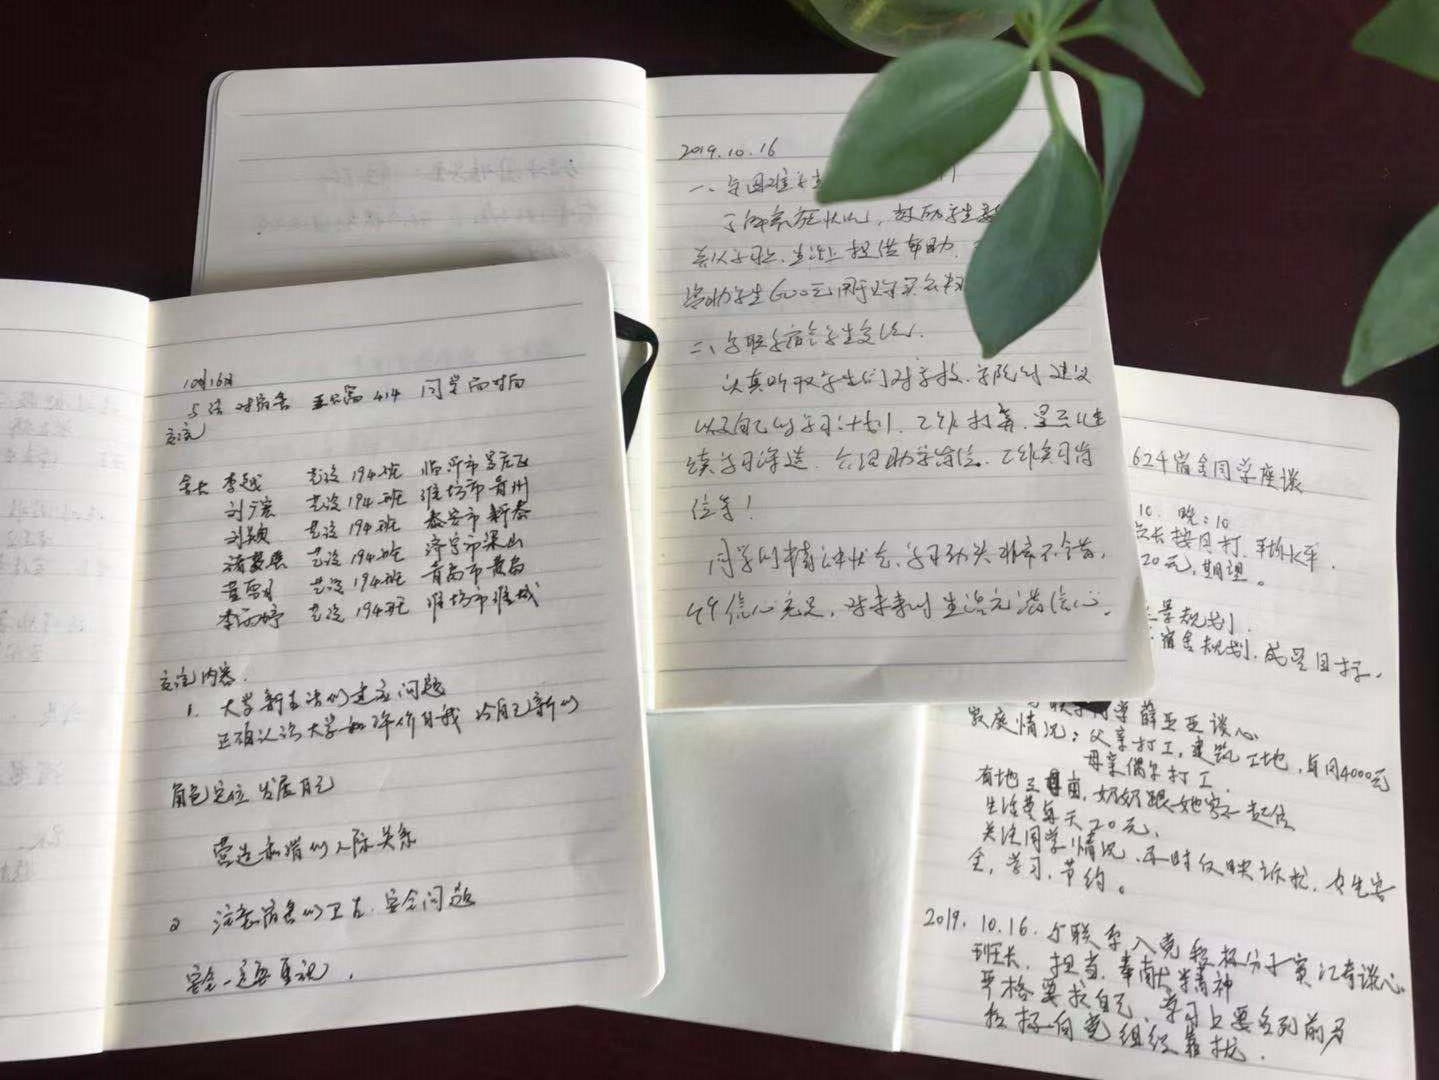 10月16日
与结对宿舍 五公寓 414 同学面对面
交流
舍长 李越 艺设194班 临沂市
刘 艺设194班 潍坊市青州
刘颖 艺设194班 泰安市新泰
艺设194班 济宁市梁山
艺设194班 青岛市黄岛
李 艺设194班 潍坊市潍城
交流内容:
1. 大学新生活的适应问题
正确认识大学和评价自我 给自己新的
角色定位 发展自己
营造和谐的人际关系
2 注意宿舍的卫生、安全问题
安全一定要重视.
2019.10.16
一、与困难学生
了解家庭状况,鼓励学生
学习上、生活上提供帮助.
资助学生600元用于购买
二、与联系宿舍学生交流.
认真听取学生们对学校、学院的建议
以及自己的学习计划、工作打算,是否继
续学习深造、合理助学
同学们精神状态、学习劲头非常不错,
信心充足,对未来的生活充满信心.
624宿舍同学座谈
10. 晚:10
按月打,平均水平.
20元,期望。
景规划.
宿舍规划,成星目标.
联系同学薛亚亚谈心
家庭情况:父亲打工,建筑工地,每月4000元
母亲偶尔打工.
有地三亩,奶奶跟她家一起住
生活费每天20元.
关注同学情况,及时反映诉求,女生安
全,学习,节约。
2019.10.16.与联系入党积极分子 谈心
班长,担当,奉献精神
严格要求自己,学习上要名列前茅
积极向党组织靠拢.